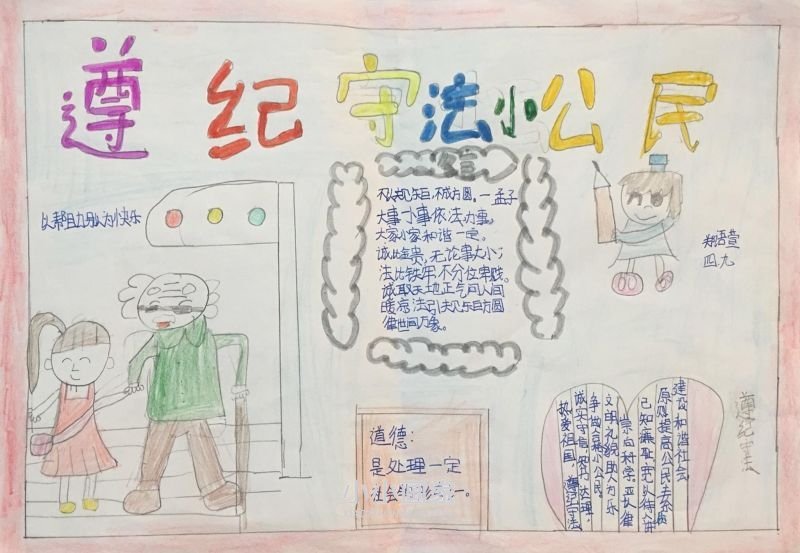 遵纪守法小公民
以帮助别人为快乐
不以规矩,不成方圆。一孟子
大事小事依法办事。
大家小家和谐一定。
诚比金贵,无论事大小;
法比铁牢,不分位卑贱。
诚取天地正气问人间
暖凉法引规矩方圆
律世间万象。
郑语萱
四.九
道德:
是处理一定
社会
建设和谐社会
原则提高公民去素质
己知廉耻宽以待人讲
崇尚科学严长律
文明礼貌助人为乐
争做合格小公民。
诚实守信,努力达理,
热爱祖国,遵纪守法
遵纪守法